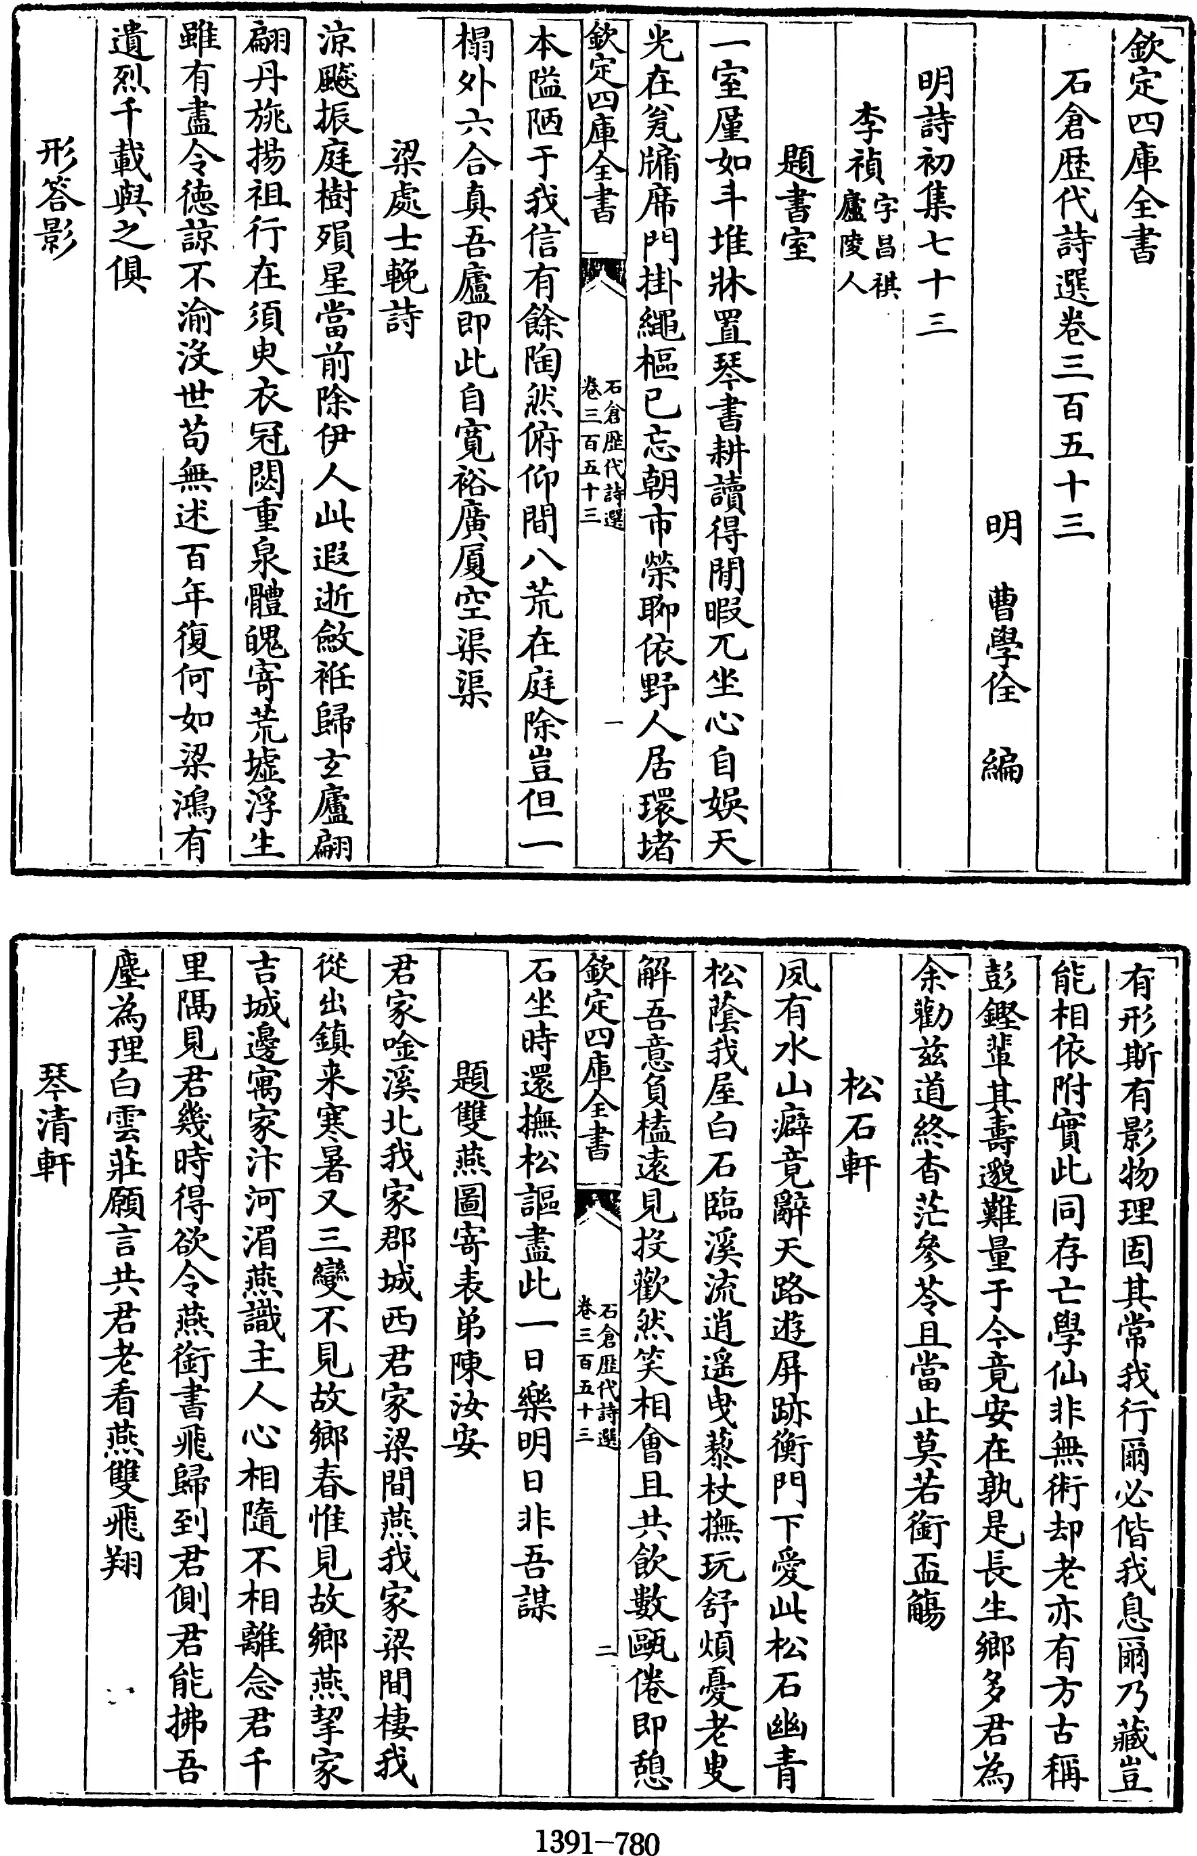 欽定四庫全書
石倉歴代詩選卷三百五十三
明　曹學佺　編
明詩初集七十三
李禎字昌祺廬陵人
題書室
一室厪如斗堆牀置琴書耕讀得閒暇兀坐心自娛天
光在瓮牖席門掛繩樞已忘朝市榮聊依野人居環堵
欽定四庫全書
石倉歴代詩選
卷三百五十三
一
本隘陋于我信有餘陶然俯仰間八荒在庭除豈但一
榻外六合真吾廬即此自寛裕廣厦空渠渠
梁處士輓詩
涼飈振庭樹殞星當前除伊人此遐逝斂袵歸玄廬翩
翩丹旐揚祖行在須臾衣冠閟重泉體魄寄荒墟浮生
雖有盡令徳諒不渝沒世苟無述百年復何如梁鴻有
遺烈千載與之俱
形答影
有形斯有影物理固其常我行爾必偕我息爾乃藏豈
能相依附實此同存亡學仙非無術却老亦有方古稱
彭鏗輩其壽邈難量于今竟安在孰是長生鄉多君為
余勸兹道終杳茫參苓且當止莫若銜盃觴
松石軒
夙有水山癖竟辭天路遊屏跡衡門下愛此松石幽青
松蔭我屋白石臨溪流逍遥曳藜杖撫玩舒煩憂老叟
解吾意負榼遠見投歡然笑相會且共飲數甌倦即憩
欽定四庫全書
石倉歴代詩選
卷三百五十三
二
石坐時還撫松謳盡此一日樂明日非吾謀
題雙燕圖寄表弟陳汝安
君家唫溪北我家郡城西君家梁間燕我家梁間棲我
從出鎮来寒暑又三變不見故鄉春惟見故鄉燕挈家
吉城邊寓家汴河湄燕識主人心相隨不相離念君千
里隔見君幾時得欲令燕銜書飛歸到君側君能拂吾
塵為理白雲莊願言共君老看燕雙飛翔
琴清軒
1391-780